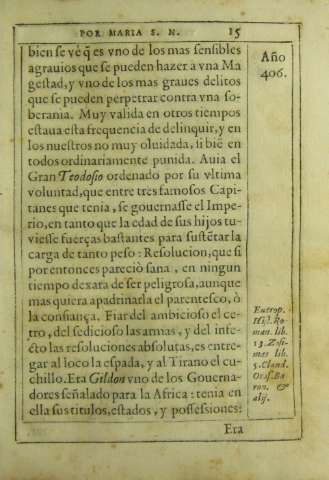 POR MARIA S. N. 15
bien se vé q̃ es vno de los mas sensibles
agrauios que se pueden hazer a vna Ma
gestad, y vno de los mas graues delitos
que se pueden perpetrar contra vna so-
berania. Muy valida en otros tiempos
estaua esta frequencia de delinquir, y en
los nuestros no muy oluidada, si biẽ en
todos ordinariamente punida. Auia el
Gran Teodosio ordenado por su vltima
voluntad, que entre tres famosos Capi-
tanes que tenia, se gouernasse el Impe-
rio, en tanto que la edad de sus hijos tu-
viesse fuerças bastantes para sustẽtar la
carga de tanto peso: Resolucion, que si
por entonces pareciò sana, en ningun
tiempo dexara de ser peligrosa, aunque
mas quiera apadrinarla el parentesco, ò
la confiança. Fiar del ambicioso el ce-
tro, del sedicioso las armas, y del infe-
cto las resoluciones absolutas, es entre-
gar al loco la espada, y al Tirano el cu-
chillo. Era Gildon vno de los Gouerna-
dores señalado para la Africa: tenia en
ella sus titulos, estados, y possessiones:
Era
Año
406.
Eutrop.
Hist. Ro-
man. lib.
13. Zosi-
mas lib.
5. Claud.
Oros. Ba-
ron. &
alij.